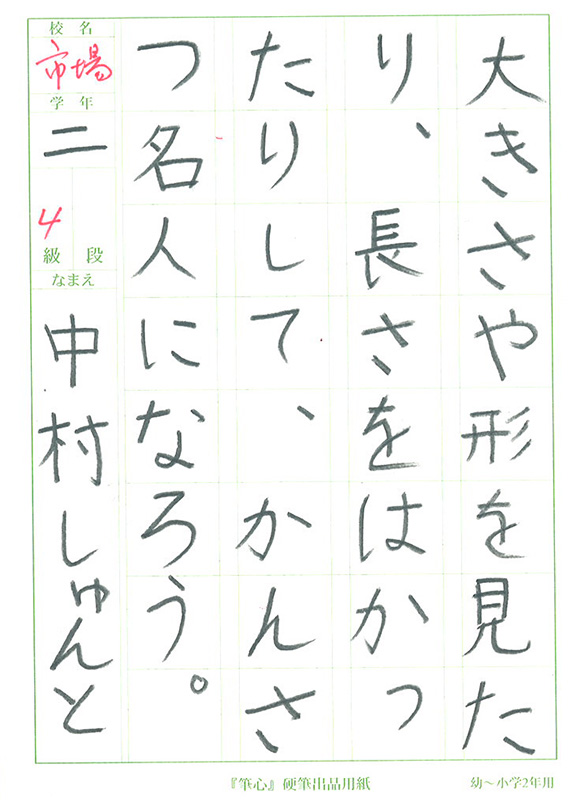 大きさや形を見た
り、長さをはかっ
たりして、かんさ
つ名人になろう。
校名
市場
学年
二
4
級段
なまえ
中村しゅんと
『筆心』硬筆出品用紙
幼〜小学2年用